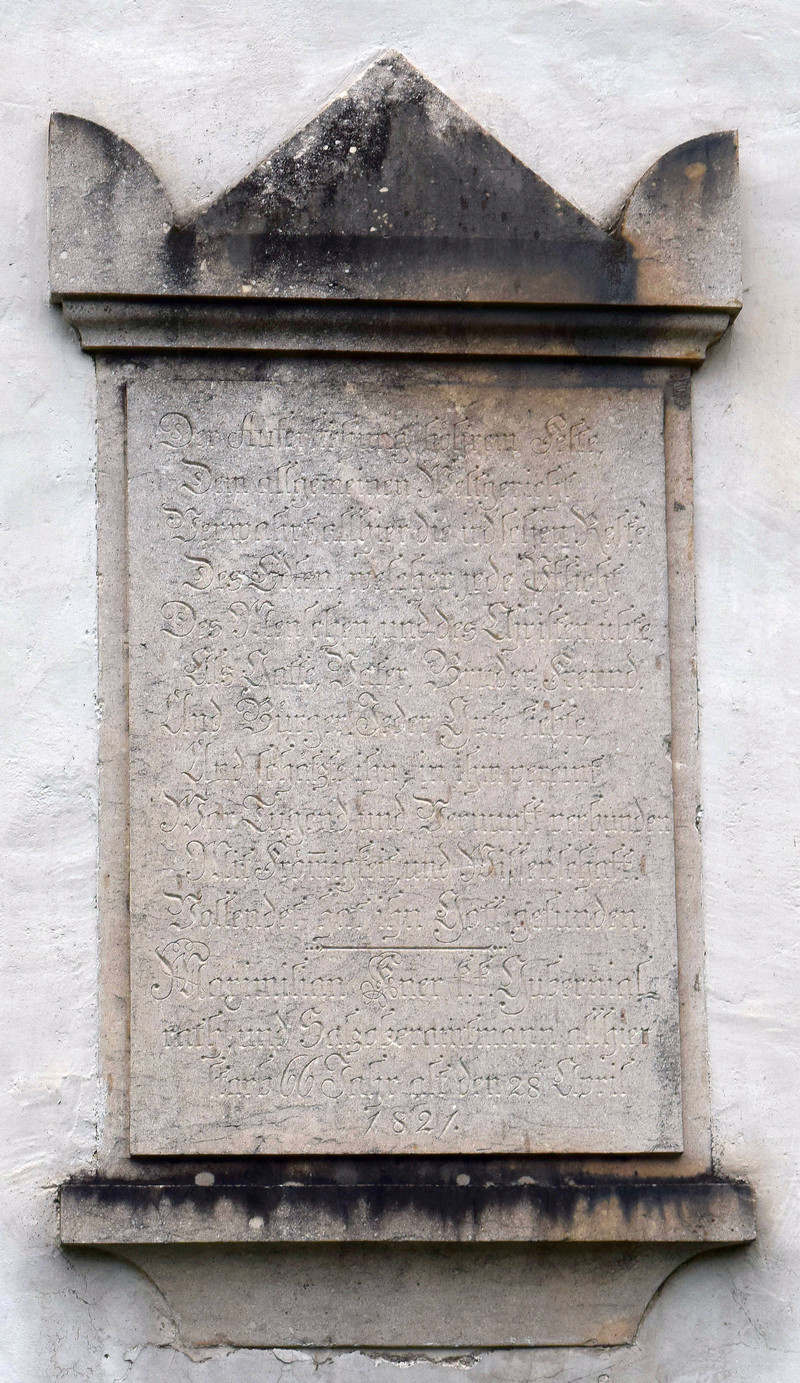 Der Auferstehung hohrem Feste,
Dem allgemeinen Weltgericht
Verwahrt allhier die irdschen Reste
Des Edlen, welcher jede Pflicht
Des Menschen, und des Christen übte,
Als Gatte, Vater, Bruder, Freund,
Und Bürger. Jeder Gute liebte,
Und schätzte ihn; in ihm vereint
War Tugend, und Vernunft verbunden
Mit From̅igkeit, und Wissenschaft.
Vollendet hat ihn Gott gefunden.
Maximilian k.k. Gubernial-
rath, und Salzoberamtmann allhier
starb 66 Jahr alt den 28t April
1821.